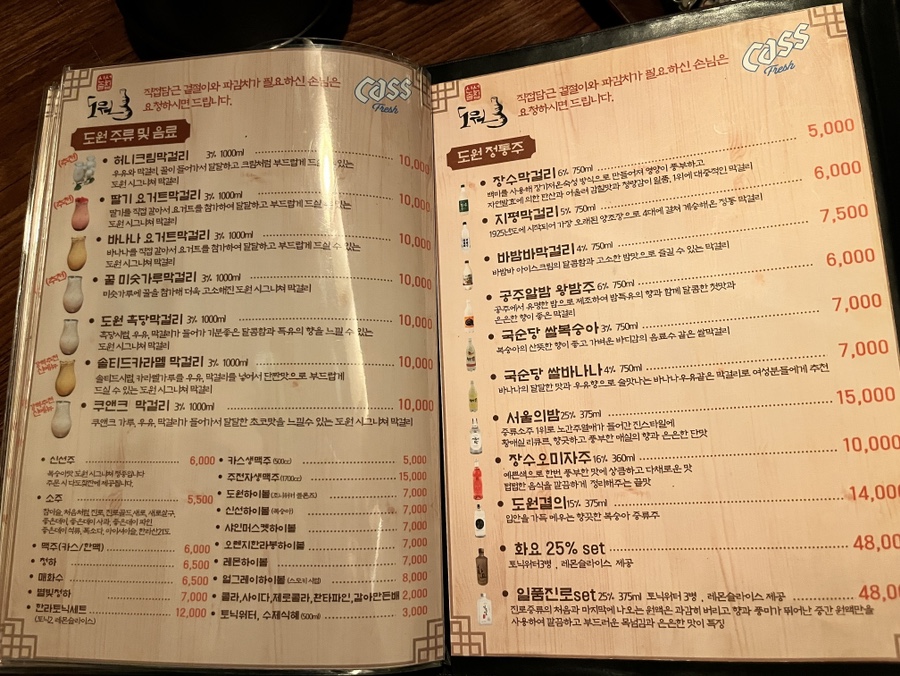 직접담근 겉절이와 파김치가 필요하신 손님은
요청하시면 드립니다.
Cass
Fresh
도원
도원 주류 및 음료
(추천)
허니크림막걸리 3% 1000ml 10,000
우유와 막걸리, 꿀이 들어가서 달달하고 크림처럼 부드럽게 드실 수 있는
도원 시그니쳐 막걸리
(추천)
딸기 요거트막걸리 3% 1000ml 10,000
딸기를 직접 갈아서 요거트를 첨가하여 달달하고 부드럽게 드실 수 있는
도원 시그니쳐 막걸리
바나나 요거트막걸리 3% 1000ml 10,000
바나나를 직접 갈아서 요거트를 첨가하여 달달하고 부드럽게 드실 수 있는
도원 시그니쳐 막걸리
(추천)
꿀 미숫가루막걸리 3% 1000ml 10,000
미숫가루에 꿀을 첨가해 더욱 고소해진 도원 시그니쳐 막걸리
도원 흑당막걸리 3% 1000ml 10,000
흑당시럽, 우유, 막걸리가 들어가 기분좋은 달콤함과 특유의 향을 느낄 수 있는
도원 시그니쳐 막걸리
솔티드카라멜 막걸리 3% 1000ml 10,000
솔티드시럽, 카라멜가루를 우유, 막걸리를 넣어서 단짠맛으로 부드럽게
드실 수 있는 도원 시그니쳐 막걸리
쿠앤크 막걸리 3% 1000ml 10,000
쿠앤크 가루, 우유, 막걸리가 들어가서 달달한 초코맛을 느낄수 있는 도원 시그니쳐 막걸리
신선주 6,000
복숭아맛 도원 시그니쳐 청주입니다
주문 시 다도잔에 제공됩니다.
소주 5,500
참이슬, 처음처럼, 진로, 진로골드, 새로, 새로살구,
좋은데이, 좋은데이 사과, 좋은데이 파인
좋은데이 석류, 톡소다, 아이셔이슬, 한라산21도
맥주(카스/한맥) 6,000
청하 6,500
매화수 6,500
별빛청하 7,000
한라토닉세트 12,000
(토닉2, 레몬슬라이스)
카스생맥주 (500cc) 5,000
주전자생맥주 (1700cc) 15,000
도원하이볼 7,000
신선하이볼 (복숭아) 7,000
샤인머스켓하이볼 7,000
오렌지한라봉하이볼 7,000
레몬하이볼 7,000
얼그레이하이볼 8,000
콜라,사이다,제로콜라,환타파인,갈아만든배 2,000
토닉워터, 수제식혜 (500ml) 3,000
직접담근 겉절이와 파김치가 필요하신 손님은
요청하시면 드립니다.
Cass
Fresh
도원
도원 정통주
장수막걸리 6% 750ml 5,000
백미를 사용해 장기저온숙성 방식으로 만들어져 영양이 풍부하고
자연발효에 의한 탄산과 어울려 감칠맛과 청량감이 일품, 1위에 대중적인 막걸리
지평막걸리 5% 750ml 6,000
1925년도에 시작되어 가장 오래된 양조장으로 4대에 걸쳐 계승해온 정통 막걸리
바밤바막걸리 4% 750ml 7,500
바밤바 아이스크림의 달콤함과 고소한 밤맛으로 즐길 수 있는 막걸리
공주알밤 왕밤주 6% 750ml 6,000
공주에서 유명한 밤으로 제조하여 밤특유의 향과 함께 달콤한 첫맛과
은은한 향이 좋은 막걸리
국순당 쌀복숭아 3% 750ml 7,000
복숭아의 산뜻한 향이 좋고 가벼운 바디감의 음료수 같은 쌀막걸리
국순당 쌀바나나 4% 750ml 7,000
바나나의 달달한 맛과 우유향으로 술맛나는 바나나우유같은 막걸리로 여성분들에게 추천
서울의밤 25% 375ml 15,000
증류소주 1위로 노간주열매가 들어간 진스타일에
황매실 리큐르, 향긋하고 풍부한 매실의 향과 은은한 단맛
장수오미자주 16% 360ml 10,000
예쁜색으로 한번 풍부한 맛에 상큼하고 다채로운 맛
텁텁한 음식을 깔끔하게 정리해주는 끝맛
도원결의 15% 375ml 14,000
입안을 가득 메우는 향긋한 복숭아 증류주
화요 25% set 48,00
토닉워터3병, 레몬슬라이스 제공
일품진로set 25% 375ml 토닉워터 3병, 레몬슬라이스 제공 48,00
진로증류의 처음과 마지막에 나오는 원액은 과감히 버리고 향과 풍미가 뛰어난 중간 원액만을
사용하여 깔끔하고 부드러운 목넘김과 은은한 맛이 특징